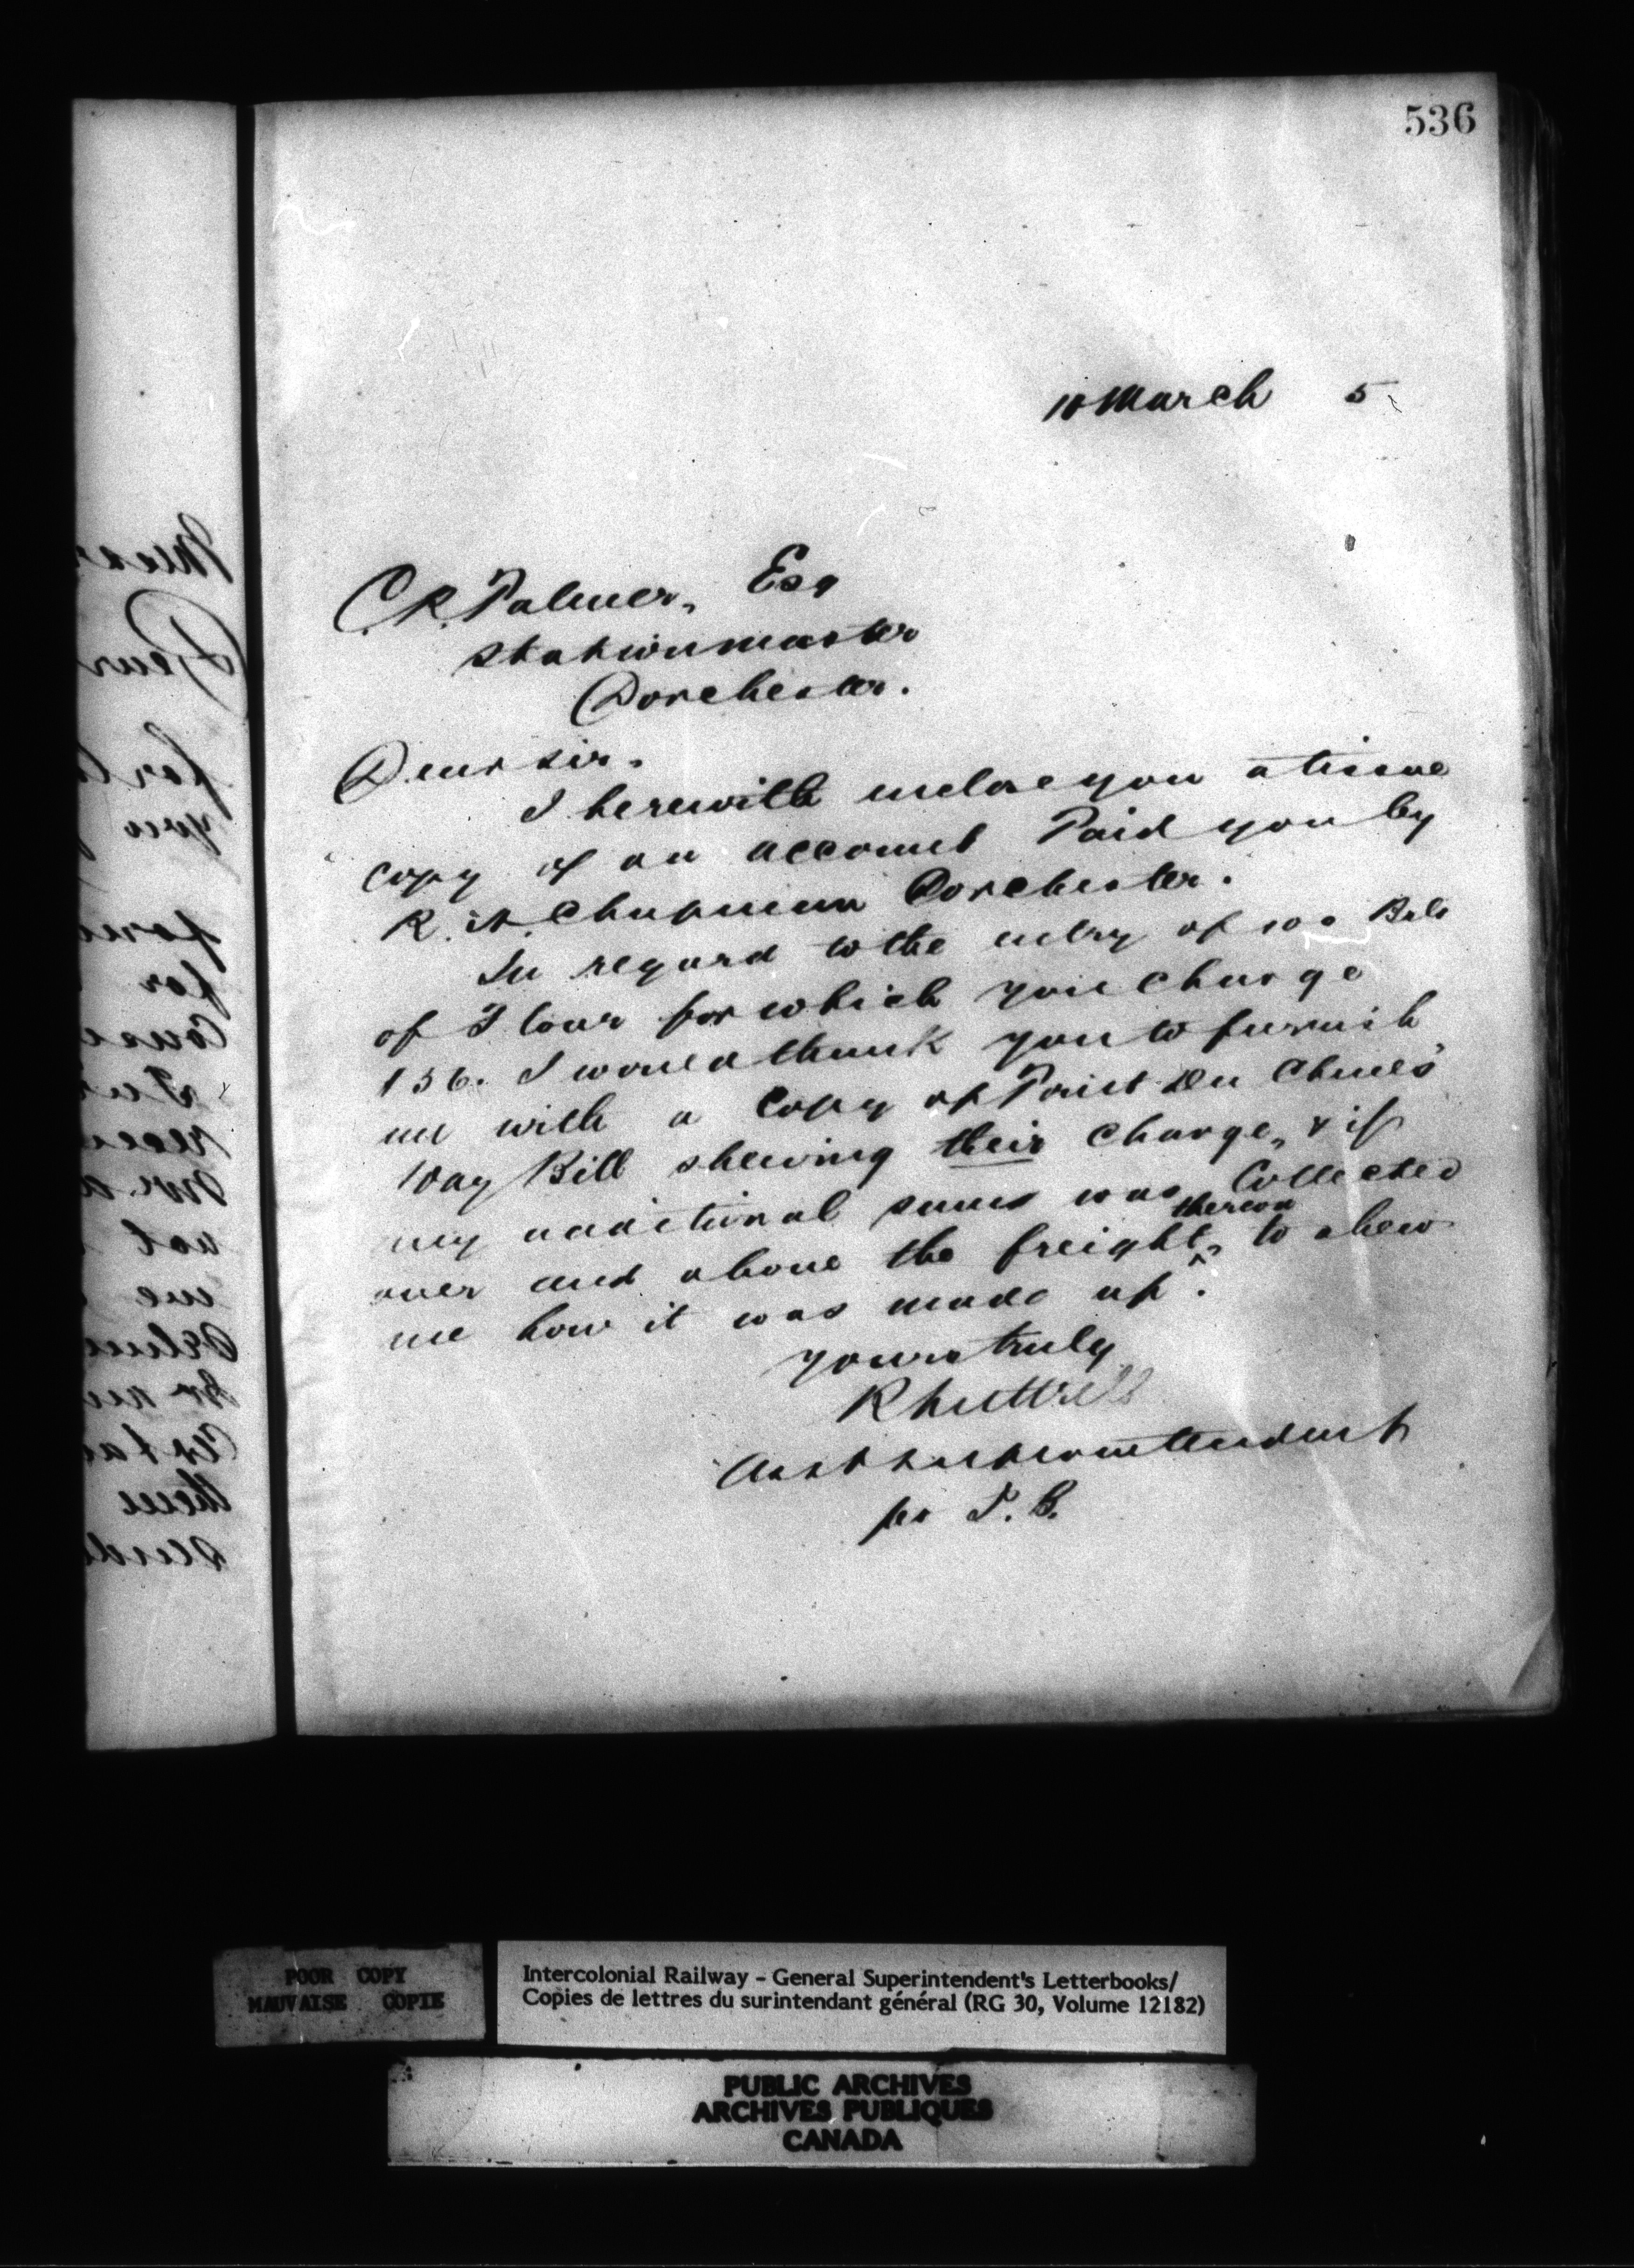 536
10 March 5
C. R. Palmer, Esq
Stationmaster
Dorchester.
Dear Sir.
I herewith enclose you a tissue
copy of an account Paid you by
R. A. Chapman Dorchester.
In regard to the entry of 100 Bbls
of Flour for which you charge
156. I would thank you to furnish
me with a Copy of Point Du Chene's
Way Bill shewing their charge, & if
any additional sums was Collected
over and above the freight, thereon to shew
me how it was made up.
yours truly
R Luttrell
Asst Superintendent
per T. B.
POOR COPY
MAUVAISE COPIE
Intercolonial Railway – General Superintendent's Letterbooks/
Copies de lettres du surintendant général (RG 30, Volume 12182)
PUBLIC ARCHIVES
ARCHIVES PUBLIQUES
CANADA